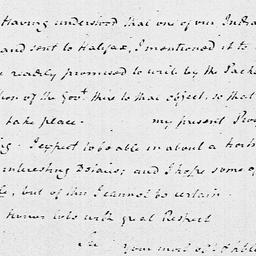 Having understood that one of our India
and sent to Halifax, I mentioned it to
readily promised to write by the Packe
tion of the Govt there to that object, so that
take place. my present Pro
ing. I expect to be able in about a
interesting and I hope some of
but of this I cannot be certain.
Honor to be with great Respect
Sir
Your most obt & hble